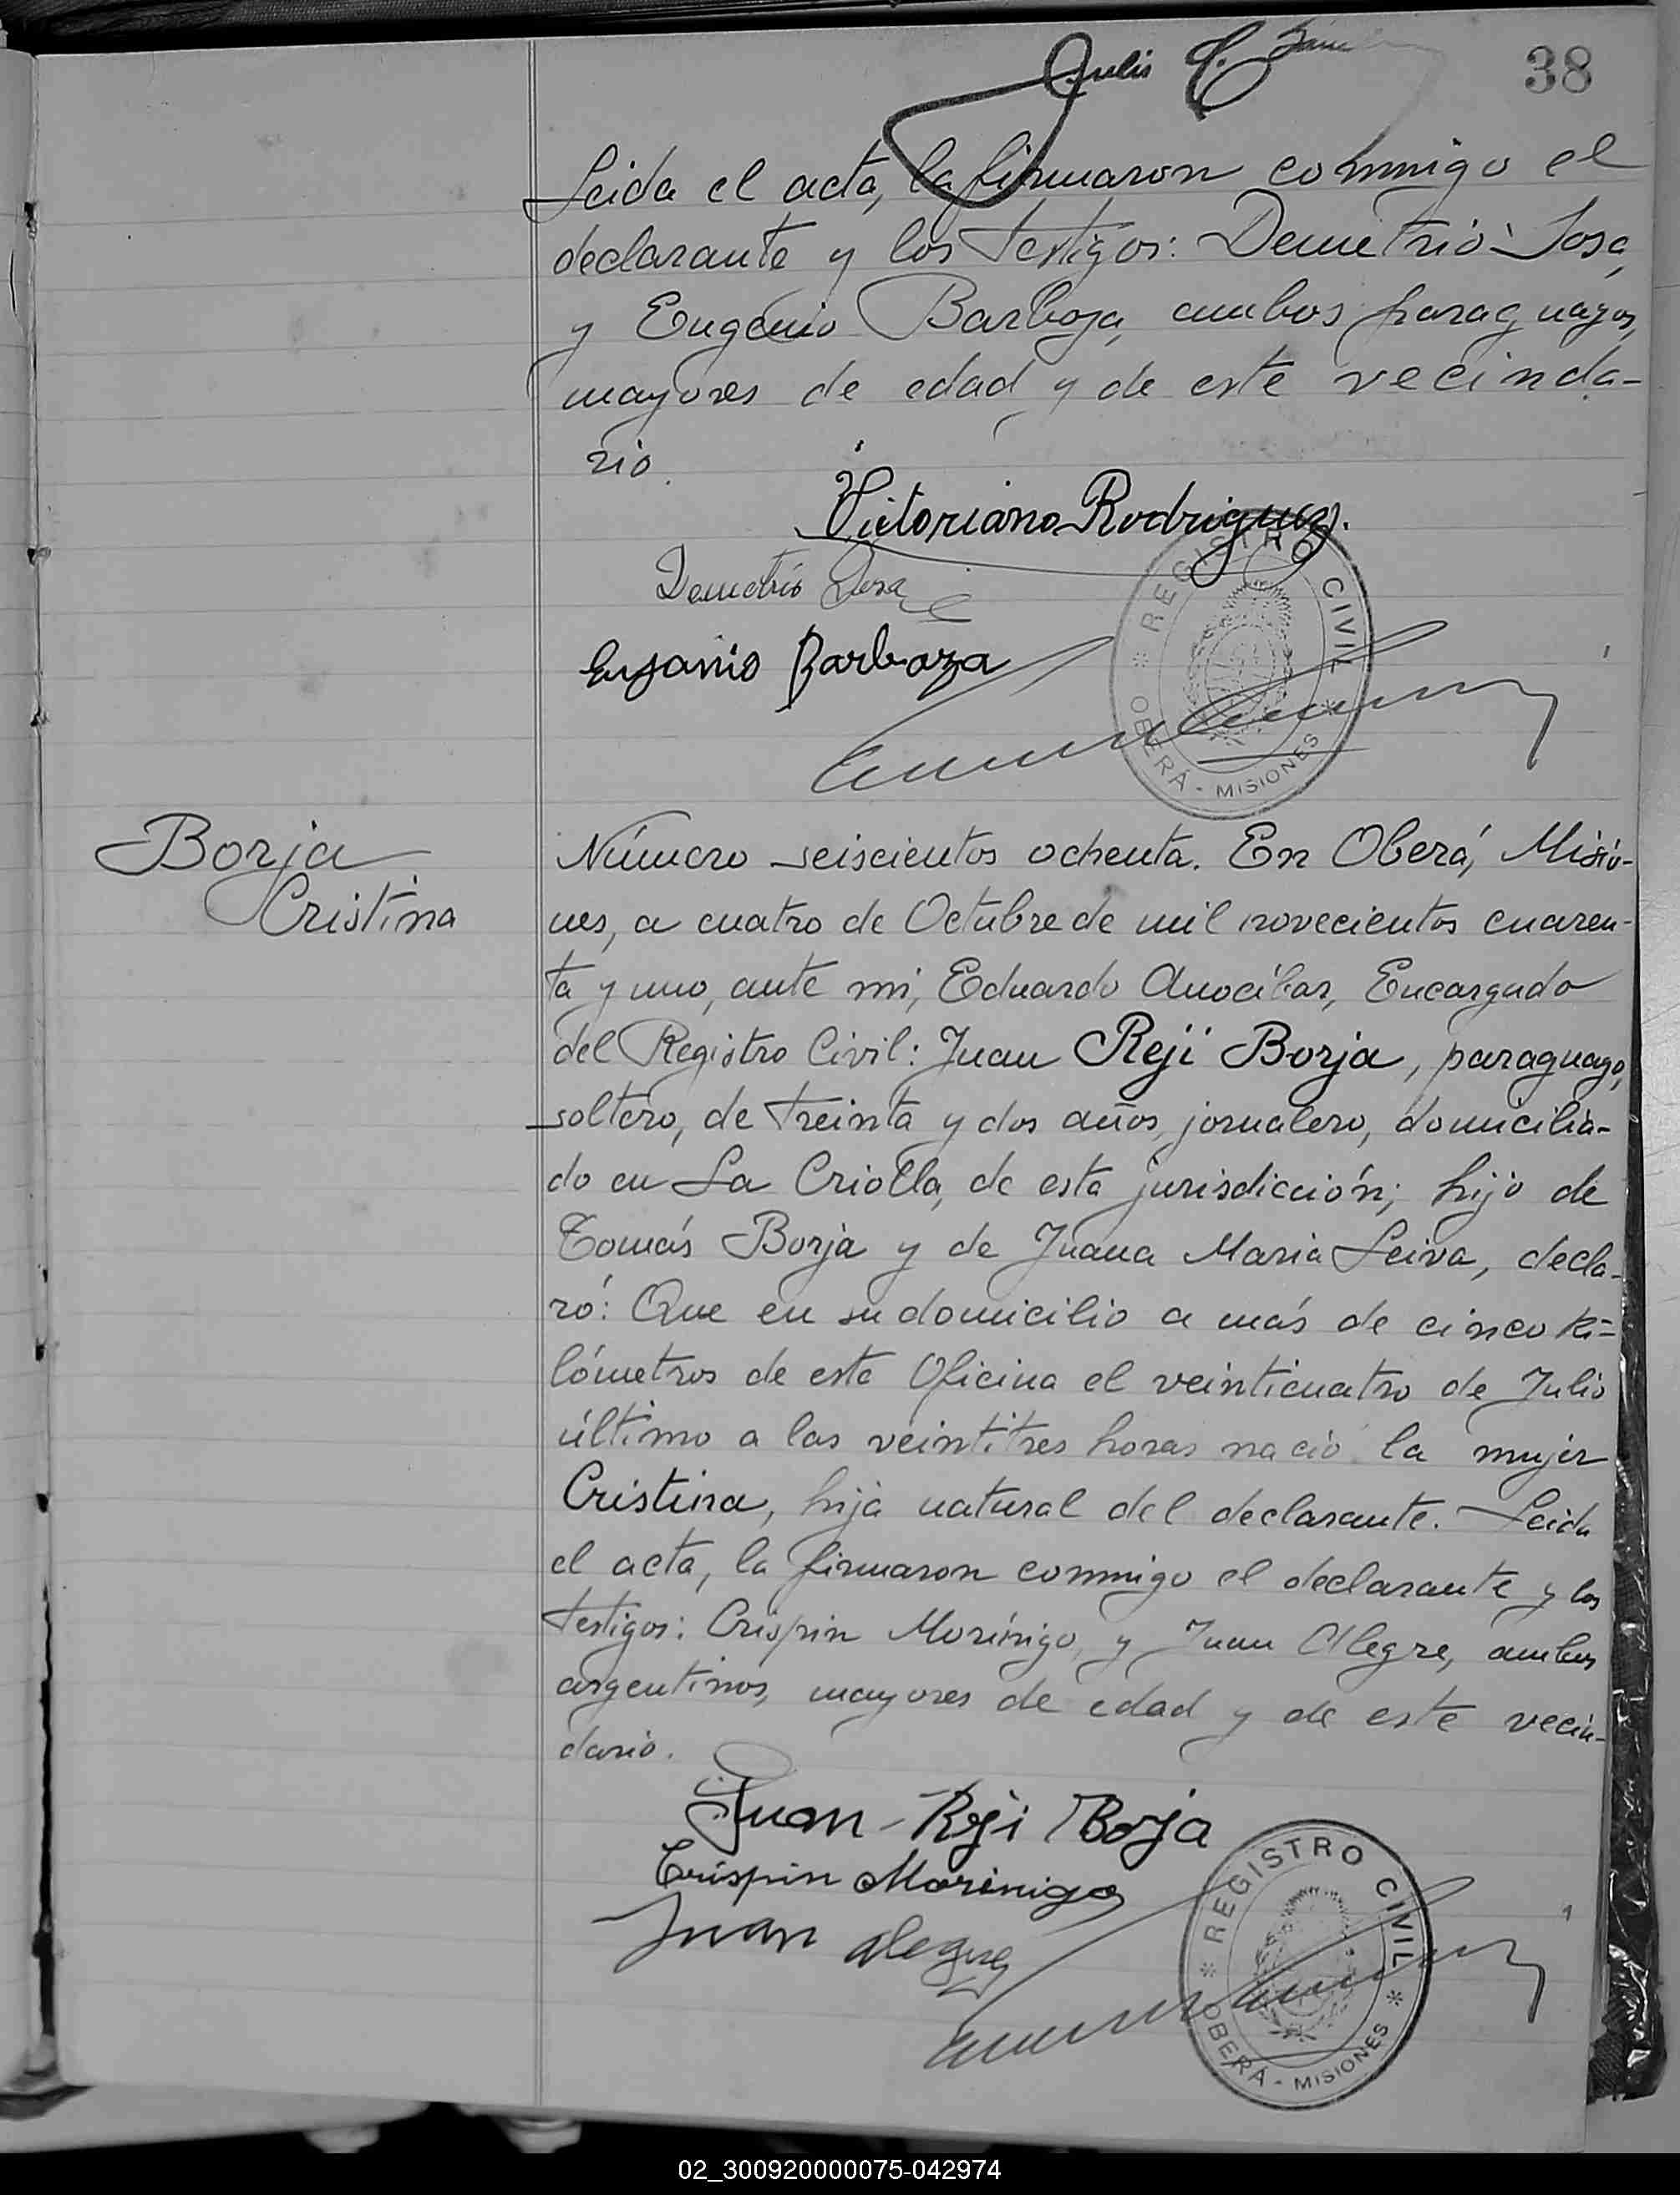 38
Julio C.
Leida el acta, la firmaron conmigo el
declarante y los testigos: Demetrio Sosa,
y Eugenio Barboza, ambos paraguayos,
mayores de edad y de este vecinda-
rio.
Victoriano Rodriguez.
Demetrio Sosa
Eujanio Barboza
REGISTRO CIVIL
OBERÁ - MISIONES
Borja
Cristina
Número seiscientos ochenta. En Oberá, Misio-
nes, a cuatro de Octubre de mil novecientos cuaren-
ta y uno, ante mi, Eduardo Anocíbar, Encargado
del Registro Civil: Juan Reji Borja, paraguayo,
soltero, de treinta y dos años, jornalero, domicilia-
do en La Criolla, de esta jurisdicción; hijo de
Tomás Borja y de Juana Maria Leiva, decla-
ró: Que en su domicilio a más de cinco ki-
lómetros de esta Oficina el veinticuatro de Julio
último a las veintitres horas nació la mujer
Cristina, hija natural del declarante. Leida
el acta, la firmaron conmigo el declarante y los
testigos: Crispin Morínigo, y Juan Alegre, ambos
argentinos, mayores de edad y de este vecin-
dario.
Juan Reji Borja
Crispin Morinigo
Juan Alegre
REGISTRO CIVIL
OBERÁ - MISIONES
02_300920000075-042974